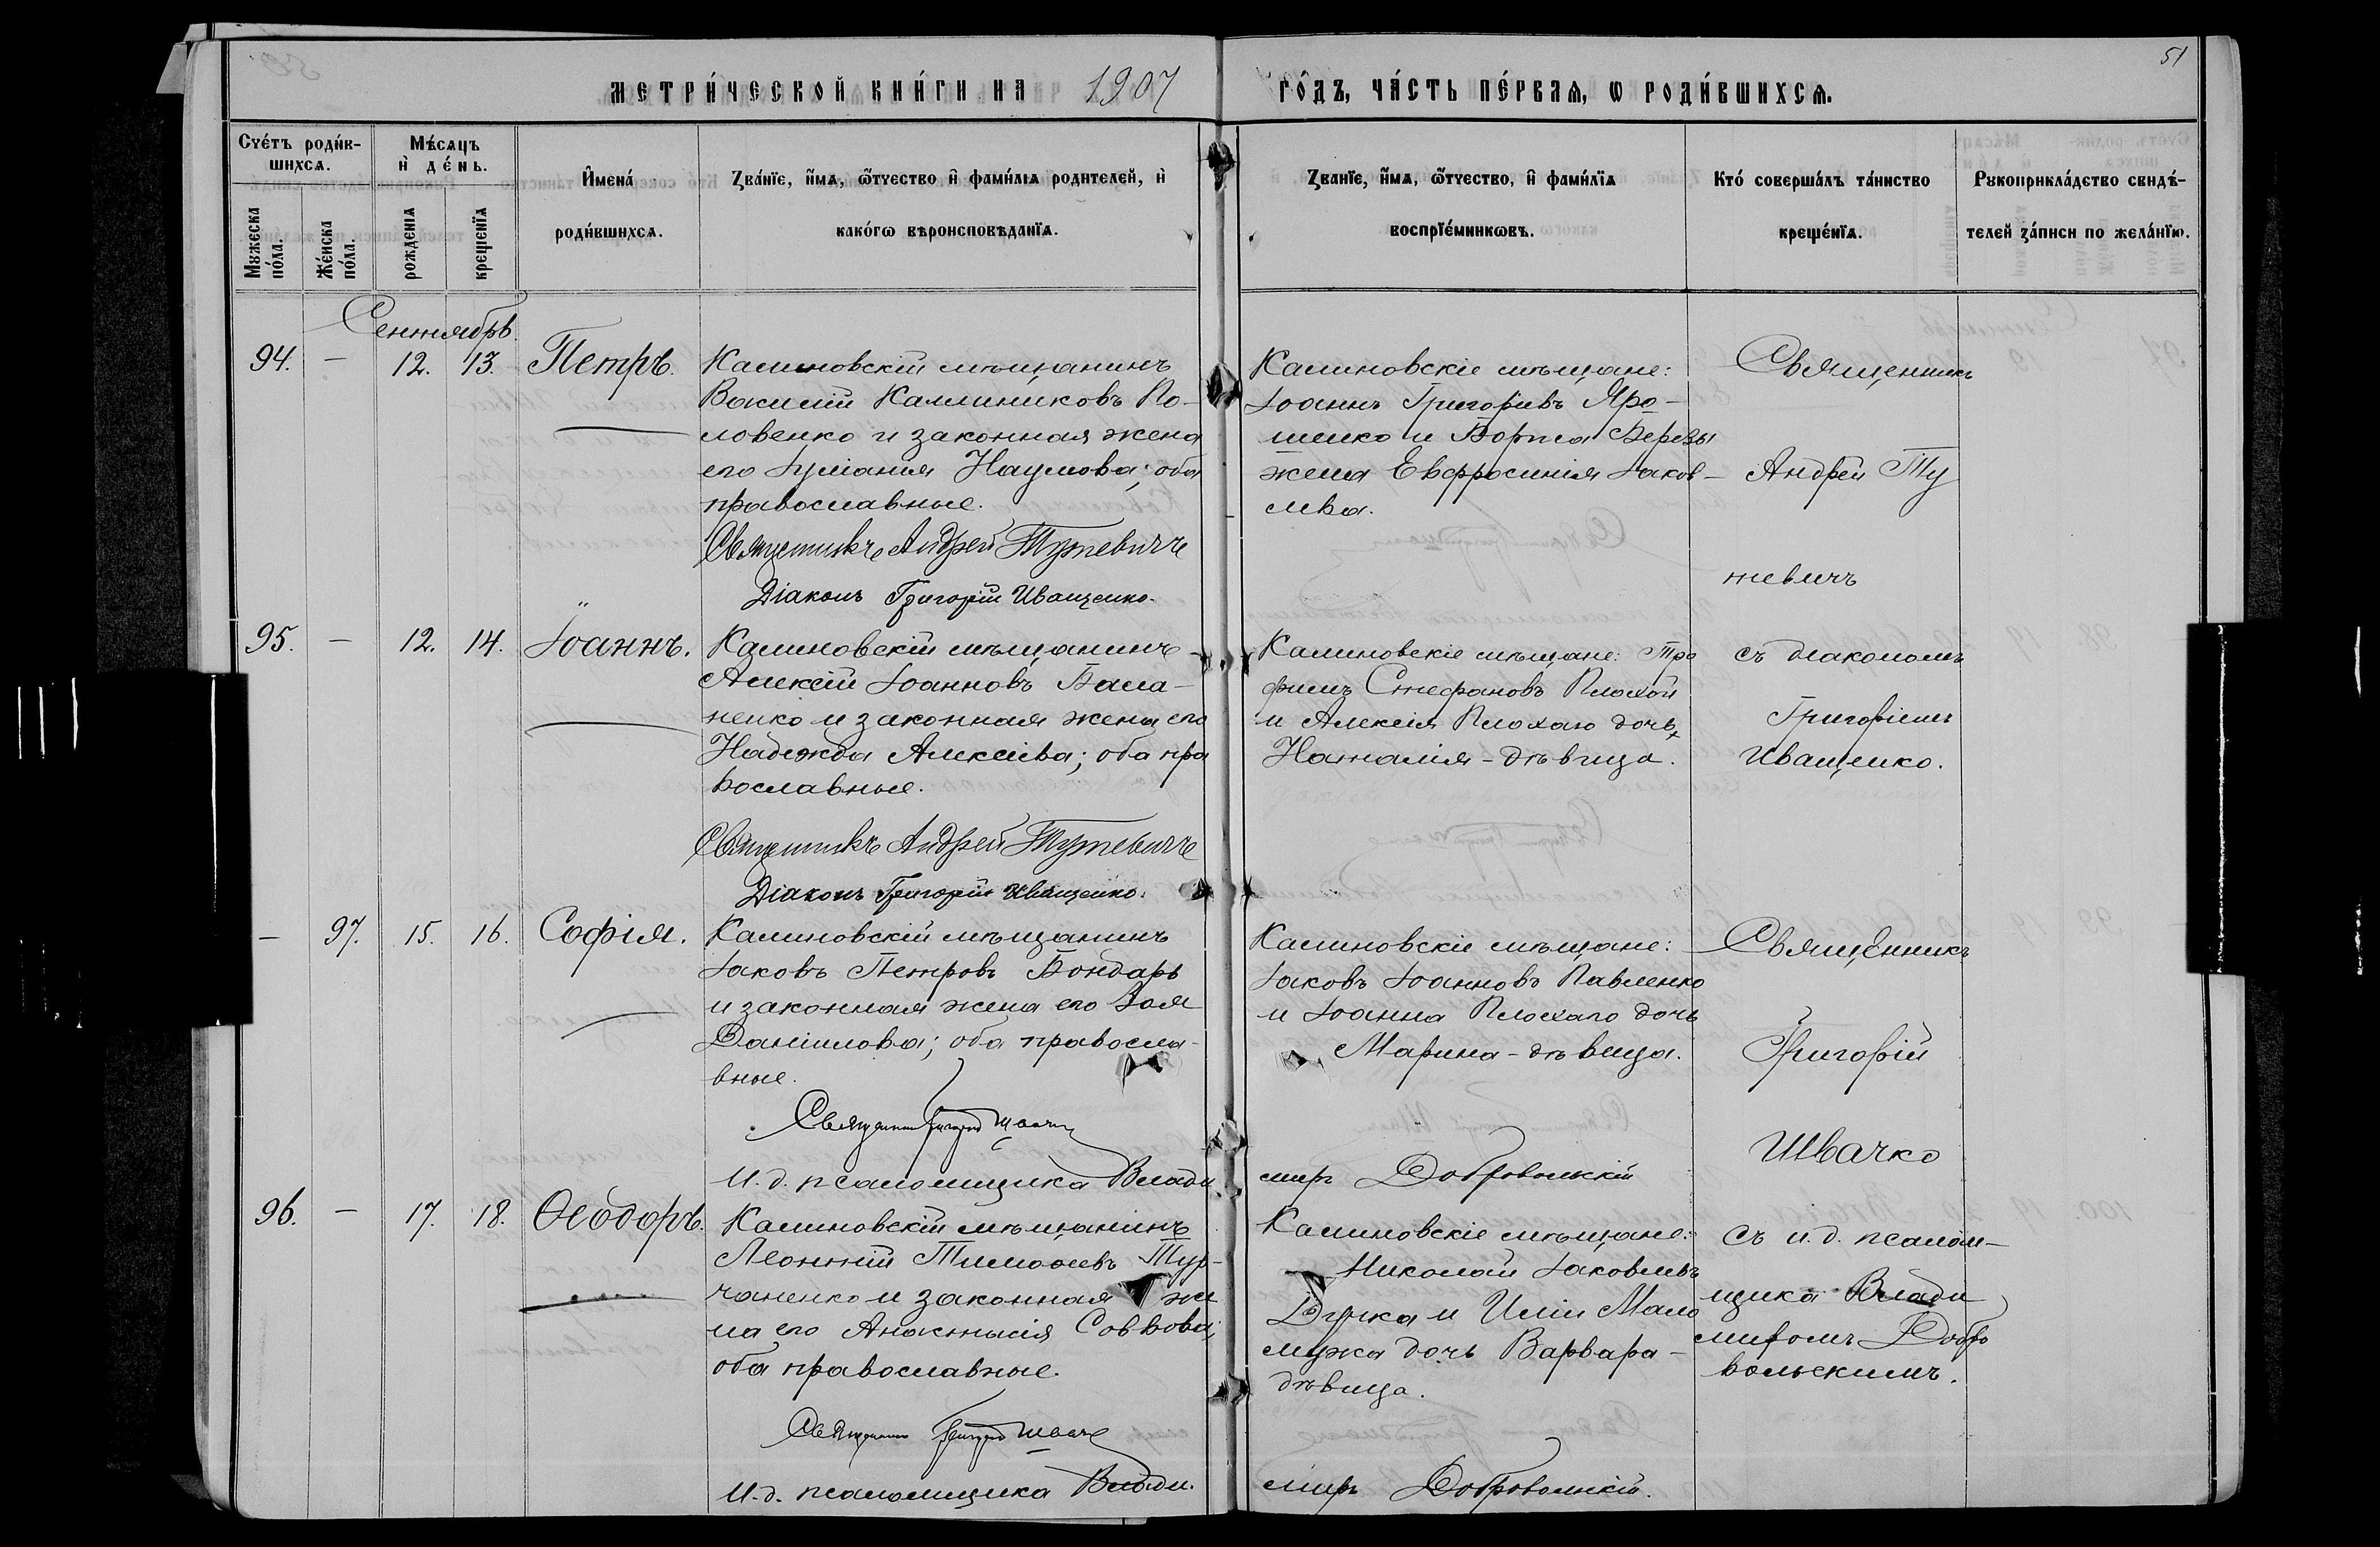 51
МЕТРИ́ЧЕСКОЙ КНИ́ГИ НА 1907 ГО́ДЪ, ЧА́СТЬ ПЕ́РВАѦ, Ѡ РОДИ́ВШИХСѦ.
Счéтъ роди́в-
шихсѧ.
Мѣ́сѧцъ
и҆ де́нь.
И҆мена́
роди́вшихсѧ.
Ꙁва́нїе, и҆́мѧ, ѻ҆́тчество и҆ фами́лїѧ родителей, и҆
како́гѡ вѣроисповѣ́данїѧ.
Ꙁванїе, и҆́мѧ, ѻ҆́тчество, и҆ фами́лїѧ
воспрїе́мникѡвъ.
Кто́ соверша́лъ та́инство
креще́нїѧ.
Рꙋкоприкла́дство свидѣ́-
телей ꙁа́писи по жела́нїю.
Мꙋжеска
по́ла.
Же́нска
по́ла.
рожденїѧ
крещенїѧ
Сентябрь.
94. — 12. 13. Петръ.
Калиновскій мѣщанинъ
Василій Каллиниковъ По-
ловенко и законная жена
его Іуліанія Наумова; оба
православные.
Священникъ Андрей Тужевичъ
Діаконъ Григорій Иващенко.
Калиновскіе мѣщане:
Іоаннъ Григорьевъ Яро-
шенко и Бориса Березы
жена Евфросинія Іаков-
лева.
Священникъ
Андрей Ту
жевичъ
95. — 12. 14. Іоаннъ.
Калиновскій мѣщанинъ
Алексій Іоанновъ Бала-
ненко и законная жена его
Надежда Алексіева; оба пра
вославные.
Священникъ Андрей Тужевичъ
Діаконъ Григорій Иващенко.
Калиновскіе мѣщане: Тро
фимъ Стефановъ Плохой
и Алексія Плохаго дочь
Наталія - дѣвица.
съ діакономъ
Григоріемъ
Иващенко.
— 97. 15. 16. Софія.
Калиновскій мѣщанинъ
Іаковъ Петровъ Бондарь
и законная жена его Зоя
Даніилова; оба правосла-
вные.
Священникъ Григорій Швачко
И. д. псаломщика Влади
миръ Добровольскій
Калиновскіе мѣщане:
Іаковъ Іоанновъ Павленко
и Іоанна Плохаго дочь
Марина - дѣвица.
Священникъ
Григорій
Швачко
96. — 17. 18. Ѳеодоръ.
Калиновскій мѣщанинъ
Леонтій Тимоѳеевъ Тур-
чаненко и законная же
на его Анастасія Саввова;
оба православные.
Священникъ Григорій Швачко
И. д. псаломщика Влади-
миръ Добровольскій.
Калиновскіе мѣщане:
Николай Іаковлевъ
и Иліи Мало
мужа дочь Варвара -
дѣвица.
съ и. д. псалом-
щика Влади
миромъ Добро
вольскимъ.